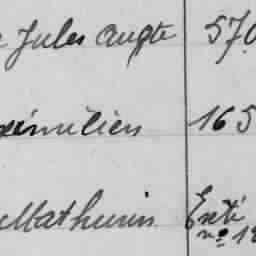 Jules Augte 570
ximilien 165
Mathurin Exté
no 18